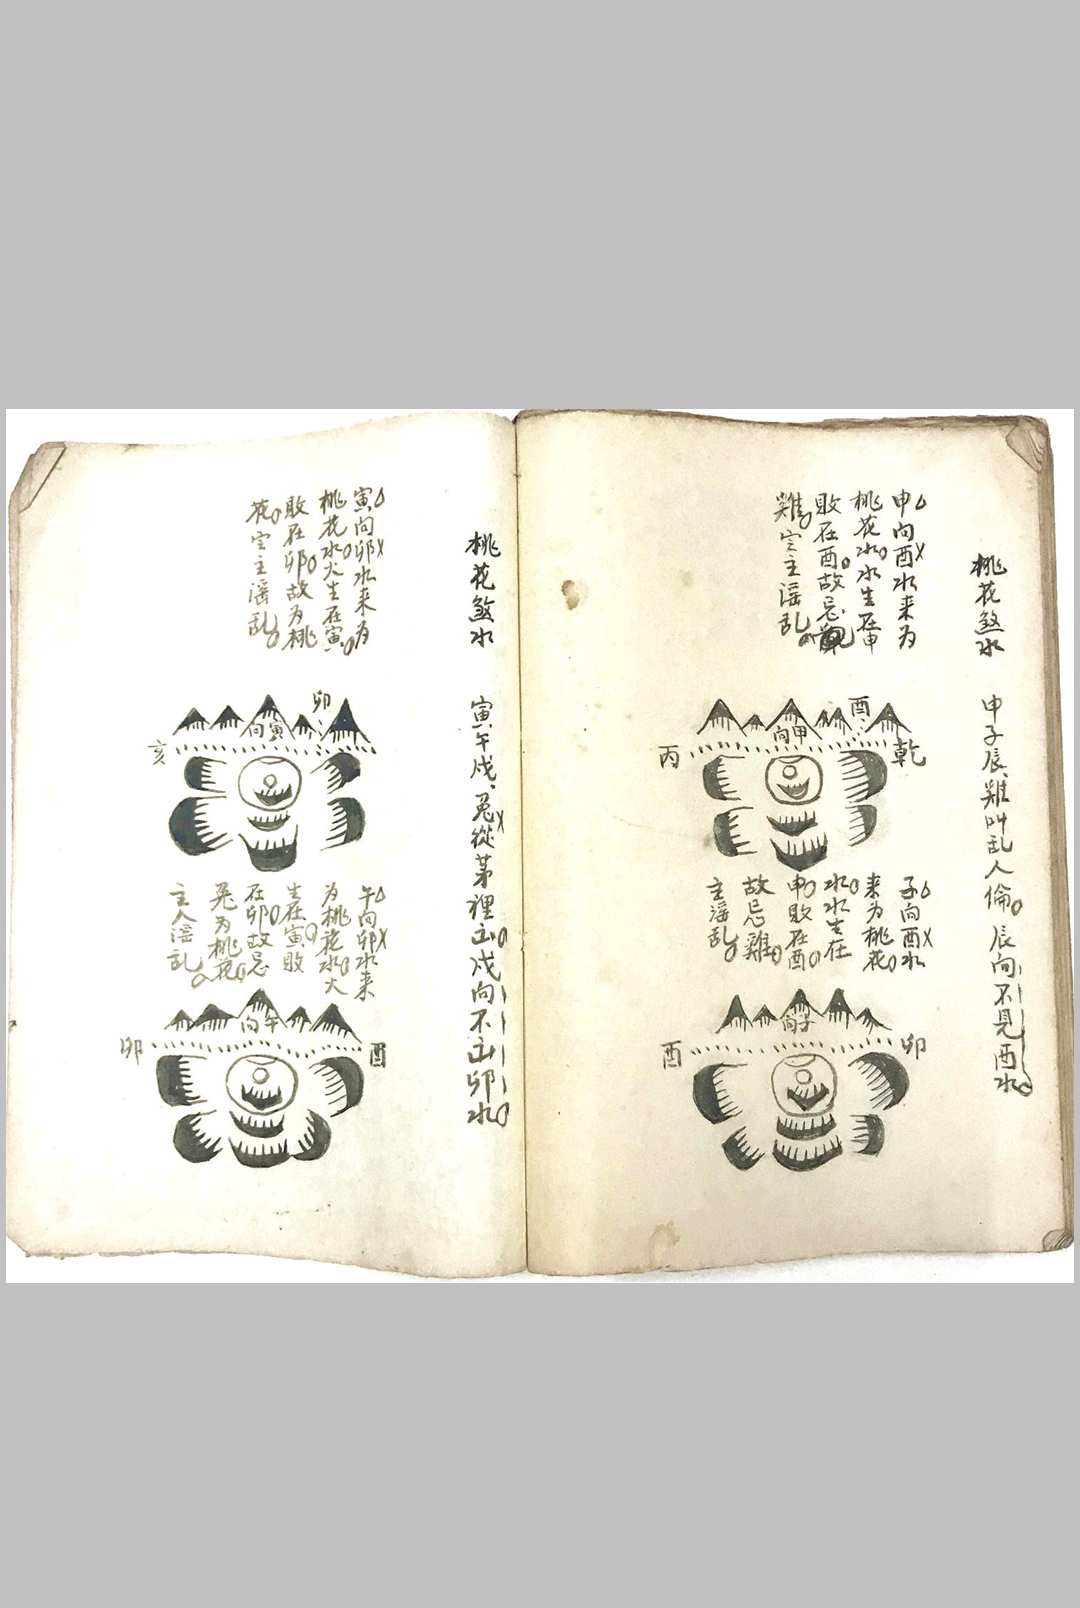 桃花煞水 申子辰、雞叫乱人倫。辰向不見酉水。
申向酉水来为
桃花水。水生在申
敗在酉。故忌
雞。定主滛乱。
酉
申向
丙
乾
子向酉水
来为桃花。
水。水生在
申。敗在酉。
故忌雞。
主滛乱。
子向
酉
卯
桃花煞水 寅午戍、兎從茅裡出。戍向不出卯水。
寅向卯水来为
桃花水。火生在寅。
敗在卯。故为桃
花。定主滛乱。
卯
寅向
亥
午向卯水来
为桃花水。火
生在寅。敗
在卯。故忌
兎为桃花。
主人滛乱。
午向
卯
酉